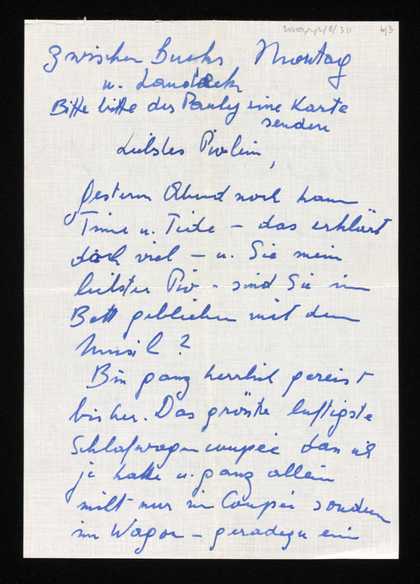 Zwischen Buchs Montag
u. Landeck
Bitte bitte der Pauly eine Karte
senden
Liebstes Pivlein,
gestern Abend noch kam
Time u. Tide – das erklärt
doch viel – u. Sie mein
liebster Piv – sind Sie im
Bett geblieben mit dem
Musil?
Bin ganz herrlich gereist
bisher. Das grösste luftigste
Schlafwagencoupée das ich
je hatte u. ganz allein
nicht nur im Coupée sondern
im Wagon – geradezu ein